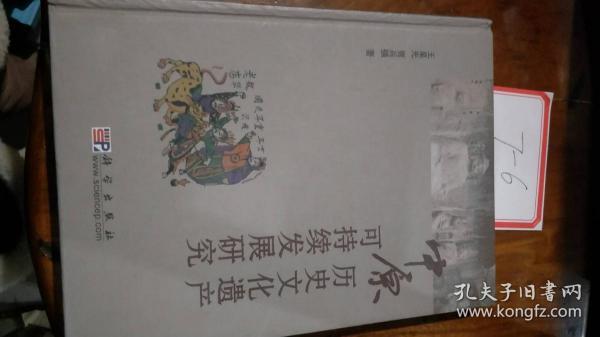 中原
历史文化遗产
可持续发展研究
科学出版社
www.sciencep.com
7-6
孔夫子旧书网
www.kongfz.com